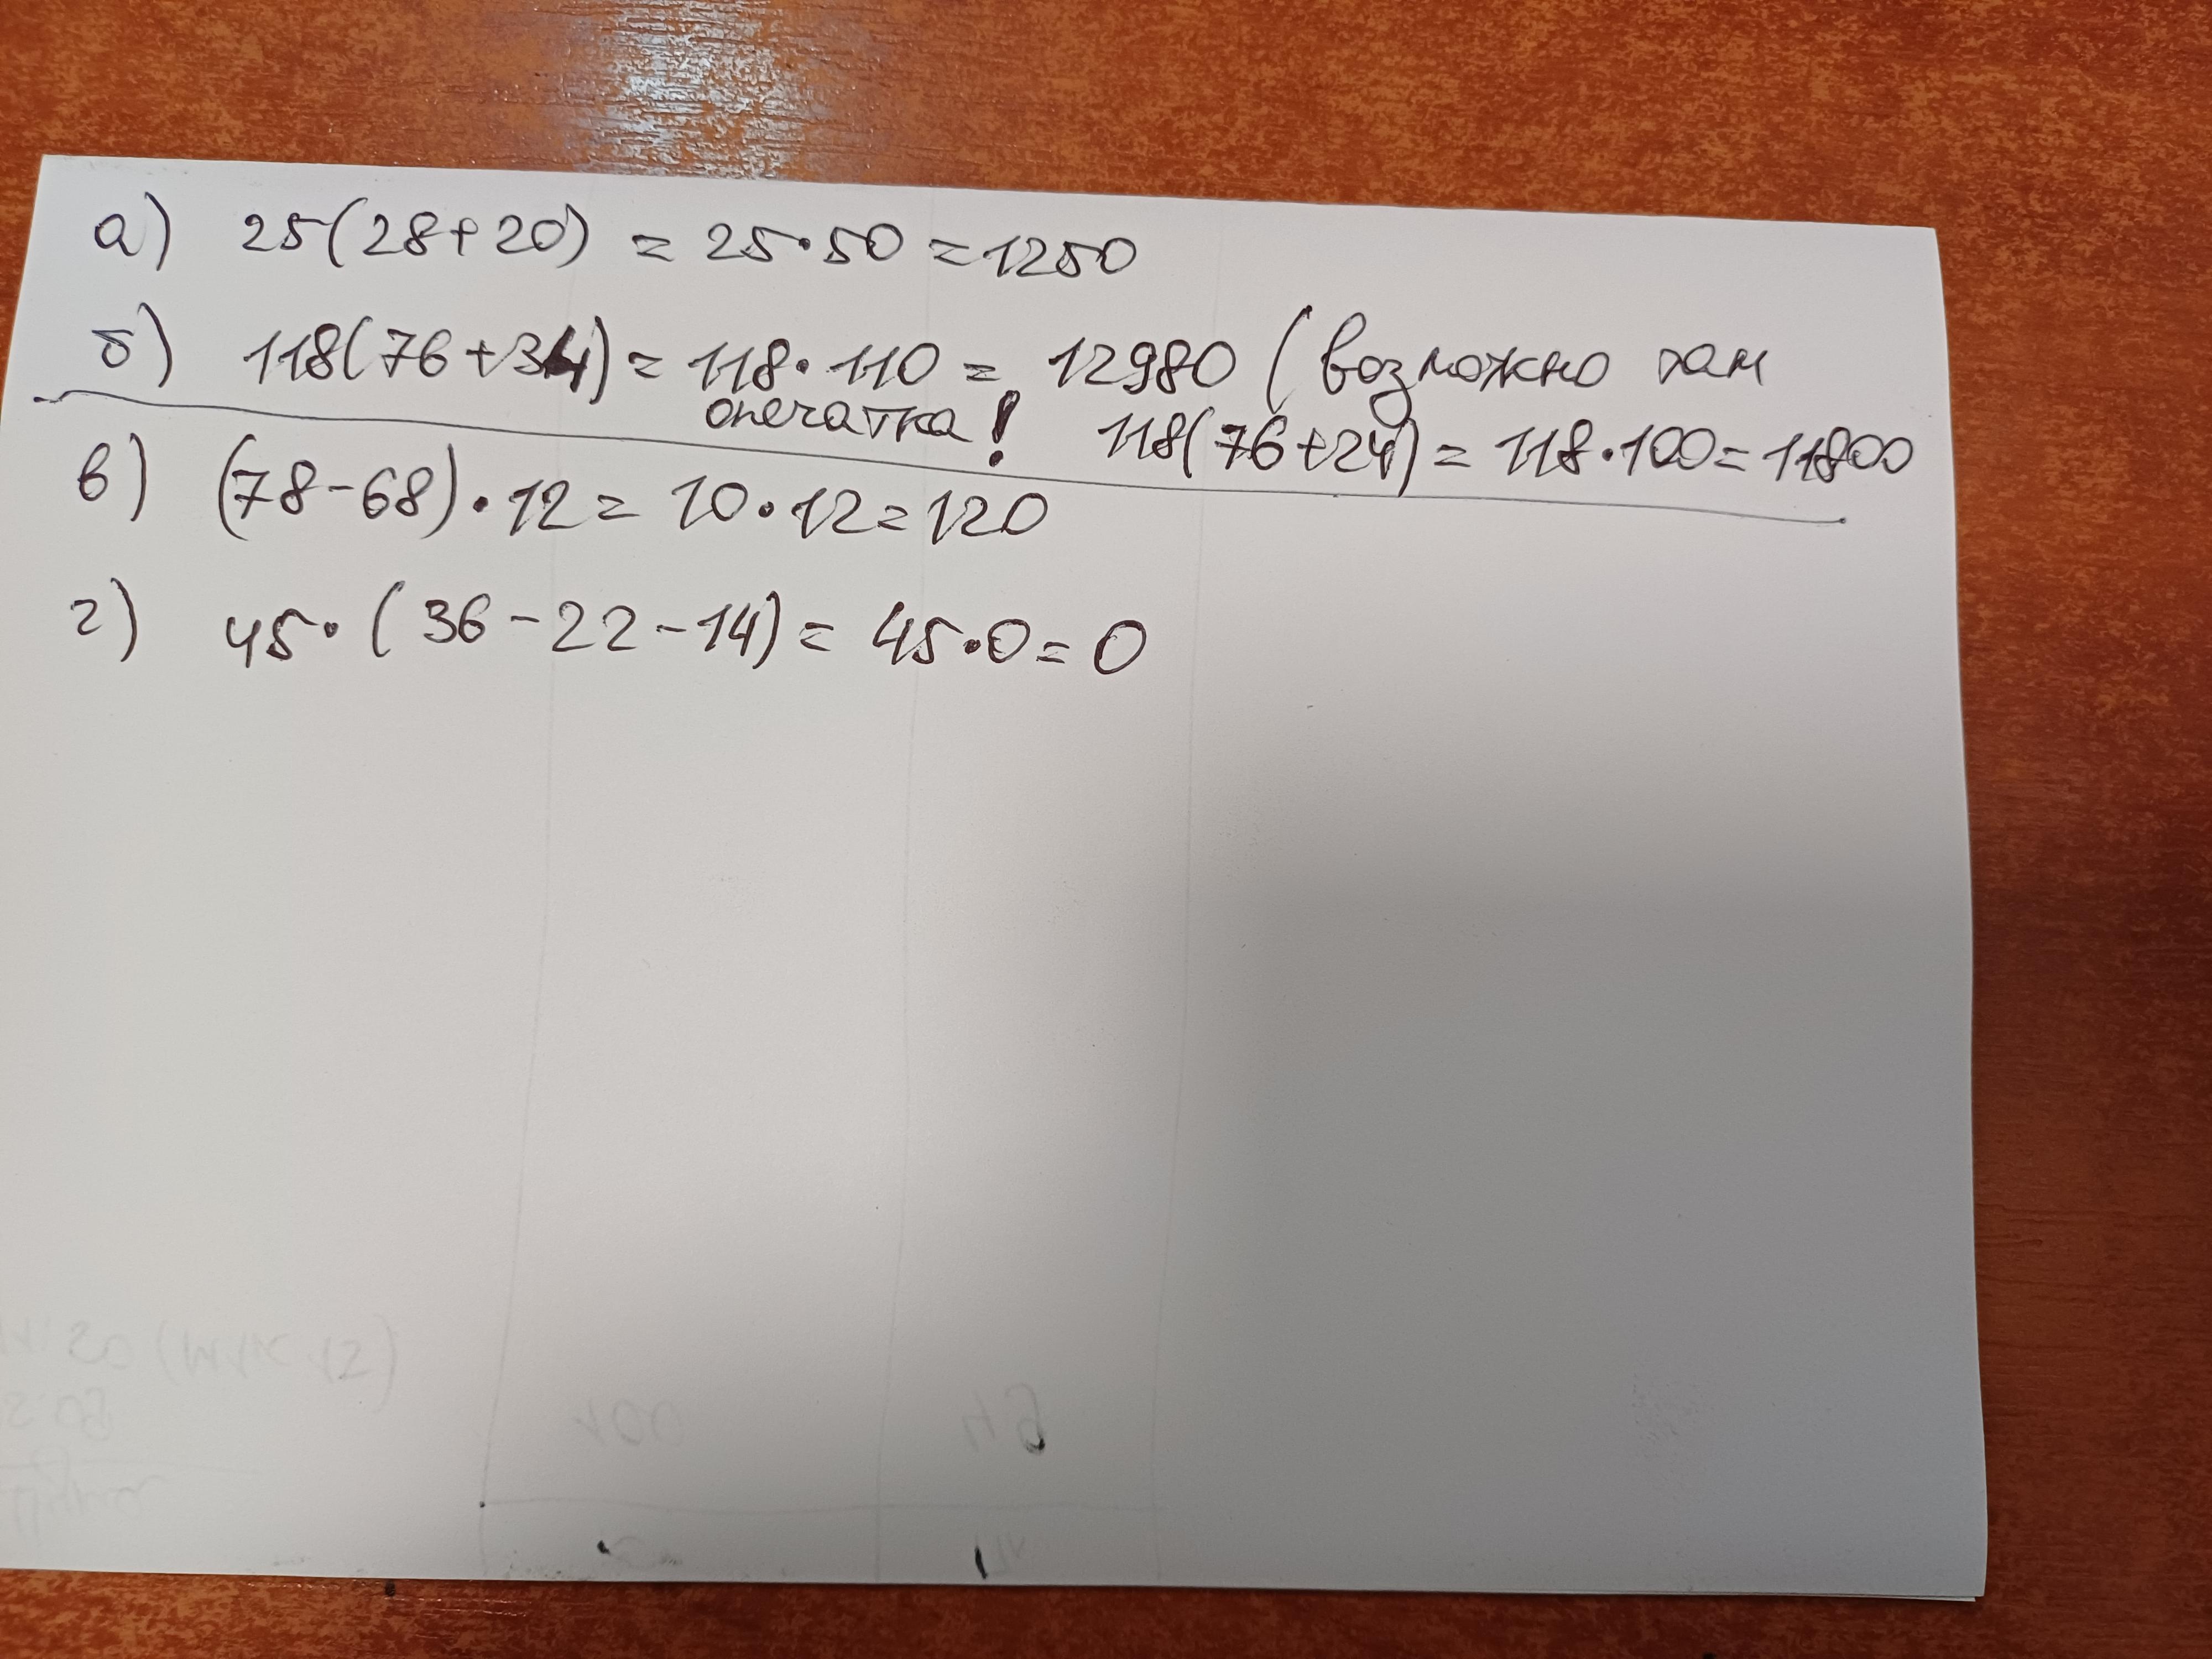 а) 25(28+20) = 25·50 = 1250
б) 118(76+34) = 118·110 = 12980 (возможно там
опечатка! 118(76+24) = 118·100 = 11800
в) (78-68)·12 = 10·12 = 120
г) 45·(36-22-14) = 45·0 = 0